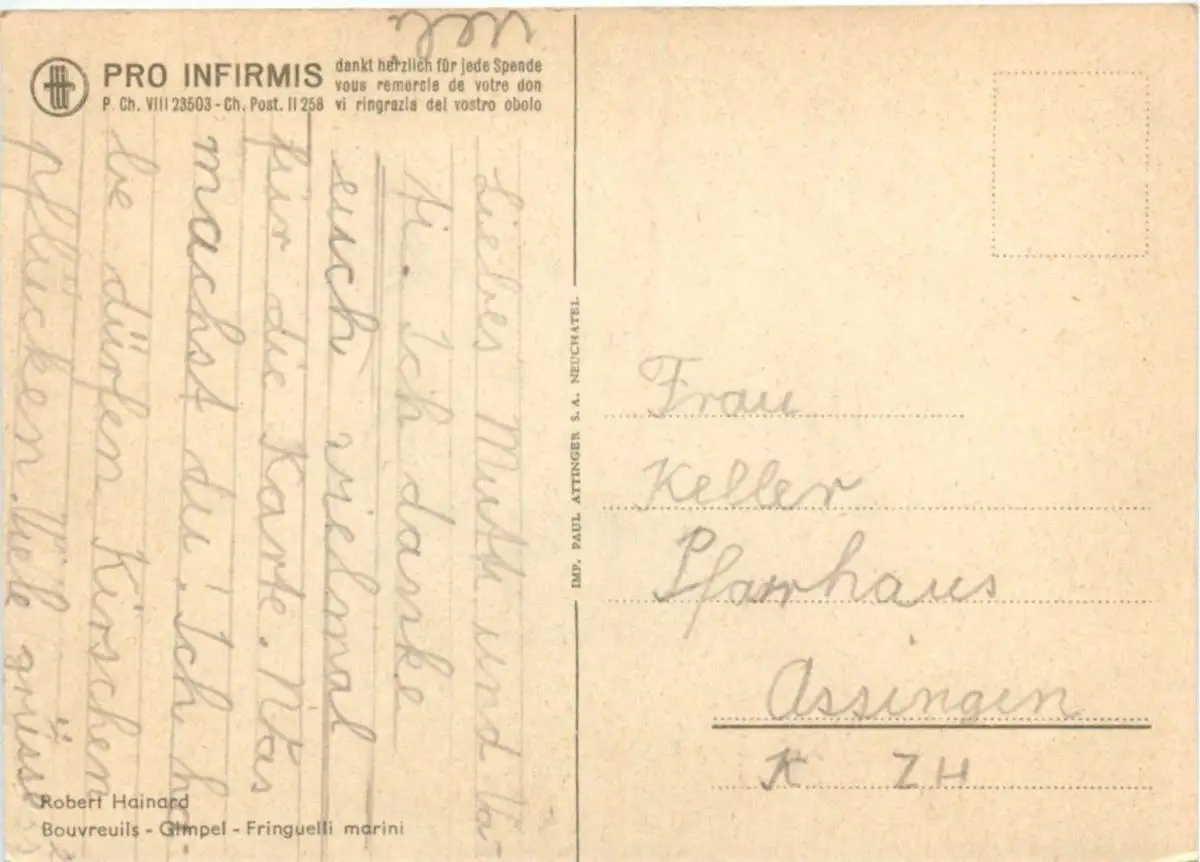 PRO INFIRMIS
P. Ch. VIII 23503 - Ch. Post. II 258
dankt herzlich für jede Spende
vous remercie de votre don
vi ringrazia del vostro obolo
Liebes Mutti und Va-
ti. Ich danke
euch vielmal
für die Karte. Was
machst du? Ich ha-
be dürfen Kirschen
pflücken. Viele grüsse
IMP. PAUL ATTINGER S. A. NEUCHATEL
Frau
Keller
Pfarrhaus
Ossingen
K ZH
Robert Hainard
Bouvreuils - Gimpel - Fringuelli marini